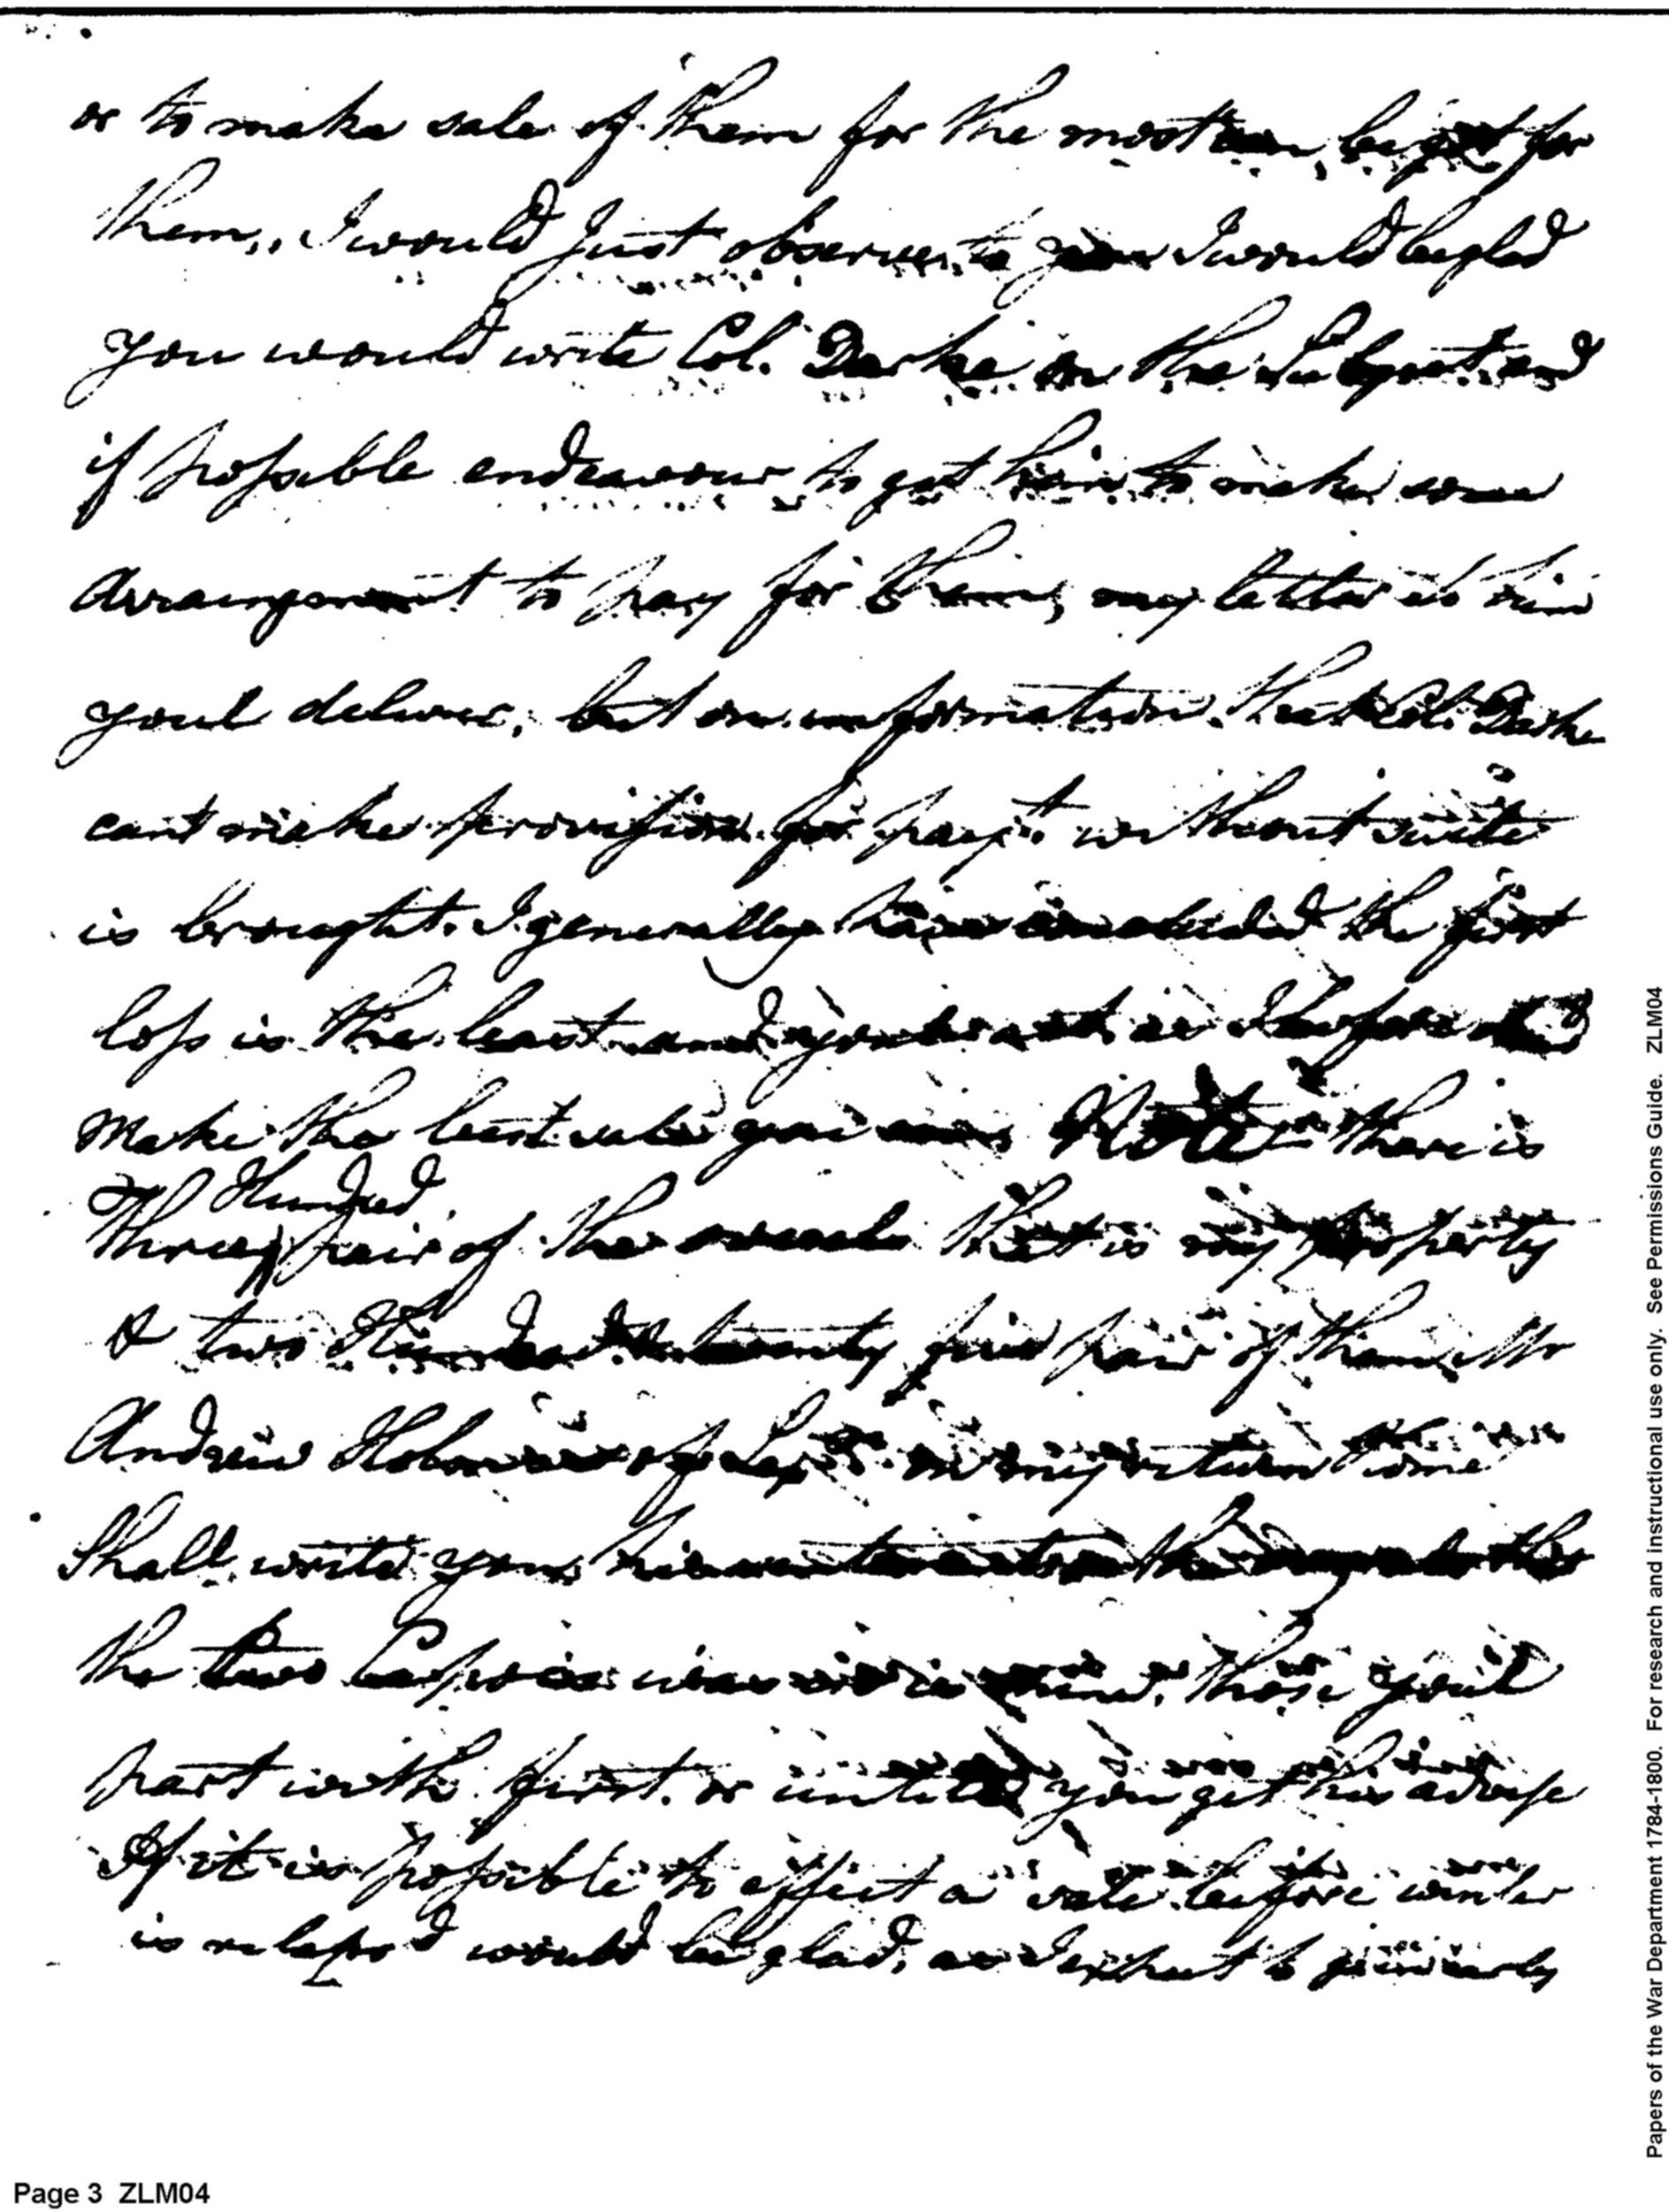 or to make sale of them for the most can be got for
them, I would Just observe to you I would be glad
you would write Col. Darke on the Subject and
if possible endeavour to get him to make some
Arrangement to pay for them, my letter to him
youl deliver, but on information that Col. Darke
cant make provision for payt. without suite
is brought. I generally have concluded the first
loss is the least and you
make the best sale you can Note there is
Three Hundred pair of the that is my property
& two Hundred & twenty five pair of them Mr
Andrew Holmes of on my return home
Shall write you his
the two was mine, those youl
part with first. or untill you get his advise
If it is possible to effect a sale before winter
is relapsd would be glad, as I expect
Papers of the War Department 1784-1800. For research and instructional use only. See Permissions Guide. ZLM04
Page 3 ZLM04